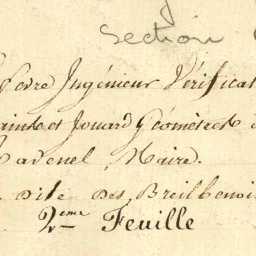 Section
Ingénieur Vérificat
et Jouard Géomètres
Ravenel Maire.
Dite Des Breilbenoi
2eme Feuille